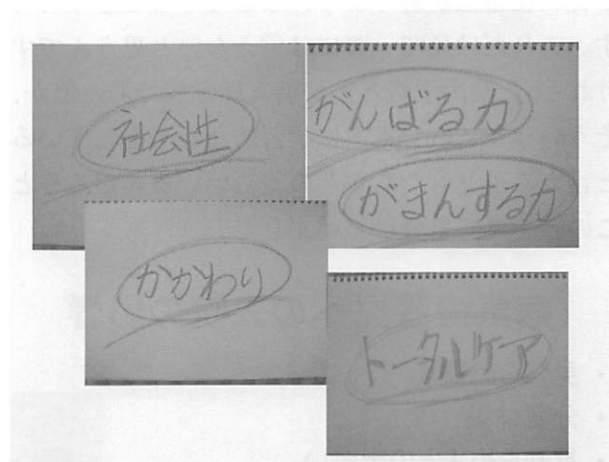 社会性
がんばる力
がまんする力
かかわり
トータルケア